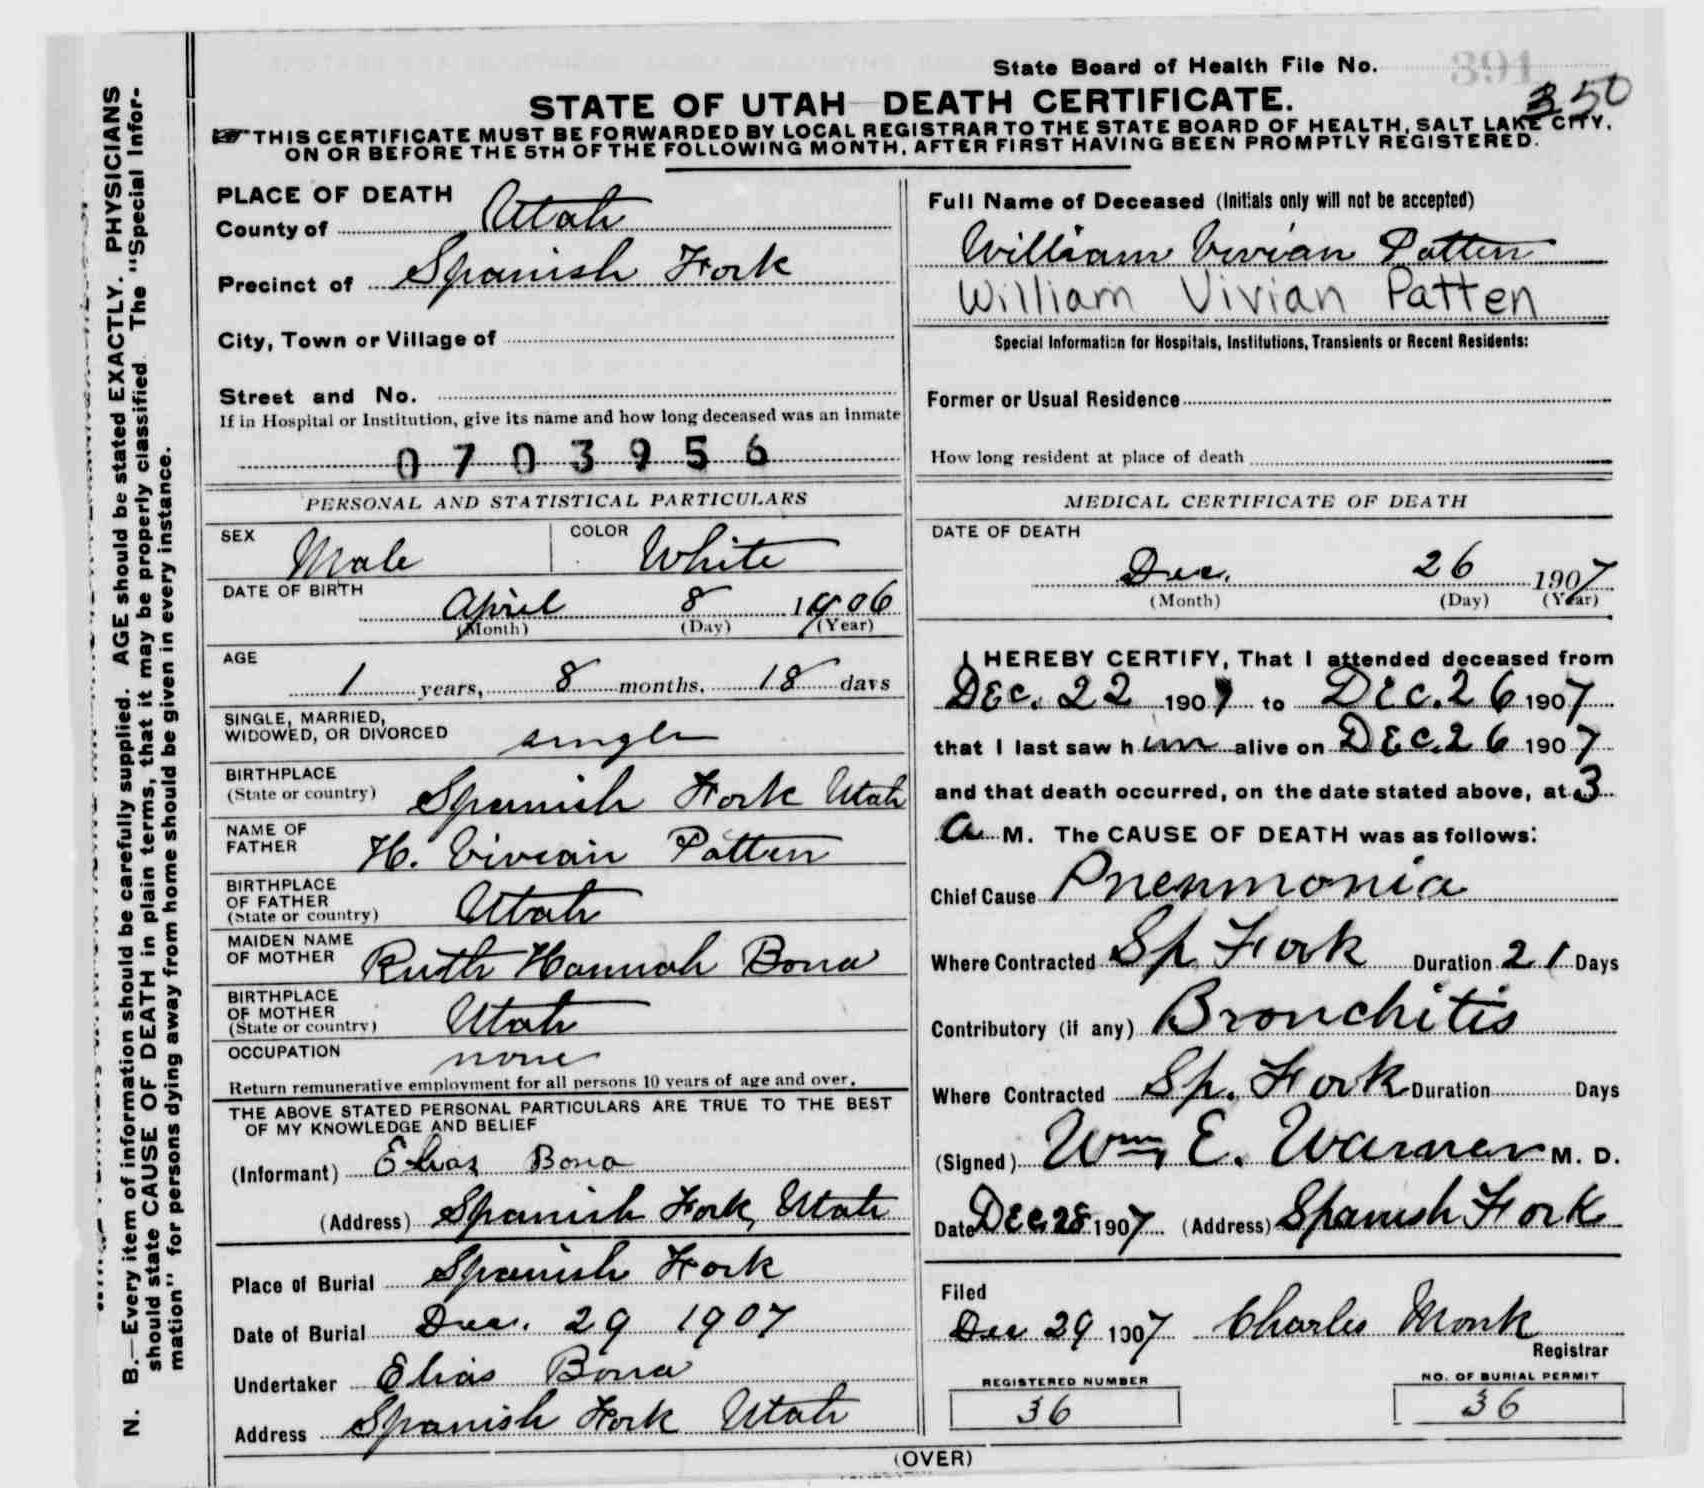 State Board of Health File No. 391
350
STATE OF UTAH DEATH CERTIFICATE.
THIS CERTIFICATE MUST BE FORWARDED BY LOCAL REGISTRAR TO THE STATE BOARD OF HEALTH, SALT LAKE CITY,
ON OR BEFORE THE 5TH OF THE FOLLOWING MONTH, AFTER FIRST HAVING BEEN PROMPTLY REGISTERED.
PLACE OF DEATH
County of Utah
Precinct of Spanish Fork
City, Town or Village of
Street and No.
If in Hospital or Institution, give its name and how long deceased was an inmate
0703956
PERSONAL AND STATISTICAL PARTICULARS
SEX Male COLOR White
DATE OF BIRTH
April 8 1906
(Month) (Day) (Year)
AGE
1 years, 8 months, 18 days
SINGLE, MARRIED,
WIDOWED, OR DIVORCED single
BIRTHPLACE
(State or country) Spanish Fork Utah
NAME OF
FATHER H. Vivian Patten
BIRTHPLACE
OF FATHER
(State or country) Utah
MAIDEN NAME
OF MOTHER Ruth Hannah Bona
BIRTHPLACE
OF MOTHER
(State or country) Utah
OCCUPATION none
Return remunerative employment for all persons 10 years of age and over.
THE ABOVE STATED PERSONAL PARTICULARS ARE TRUE TO THE BEST
OF MY KNOWLEDGE AND BELIEF
(Informant) Elias Bona
(Address) Spanish Fork, Utah
Place of Burial Spanish Fork
Date of Burial Dec. 29 1907
Undertaker Elias Bona
Address Spanish Fork Utah
Full Name of Deceased (Initials only will not be accepted)
William Vivian Patten
William Vivian Patten
Special Information for Hospitals, Institutions, Transients or Recent Residents:
Former or Usual Residence
How long resident at place of death
MEDICAL CERTIFICATE OF DEATH
DATE OF DEATH
Dec. 26 1907
(Month) (Day) (Year)
I HEREBY CERTIFY, That I attended deceased from
Dec. 22 1907 to Dec. 26 1907
that I last saw him alive on Dec. 26 1907
and that death occurred, on the date stated above, at 3
a M. The CAUSE OF DEATH was as follows:
Chief Cause Pnenmonia
Where Contracted Sp Fork Duration 21 Days
Contributory (if any) Bronchitis
Where Contracted Sp. Fork Duration Days
(Signed) Wm E. Warner M. D.
Date Dec 28 1907 (Address) Spanish Fork
Filed
Dec 29 1907 Charles Monk
Registrar
REGISTERED NUMBER
36
NO. OF BURIAL PERMIT
36
(OVER)
N. B.—Every item of information should be carefully supplied. AGE should be stated EXACTLY. PHYSICIANS
should state CAUSE OF DEATH in plain terms, that it may be properly classified The "Special Infor-
mation" for persons dying away from home should be given in every instance.